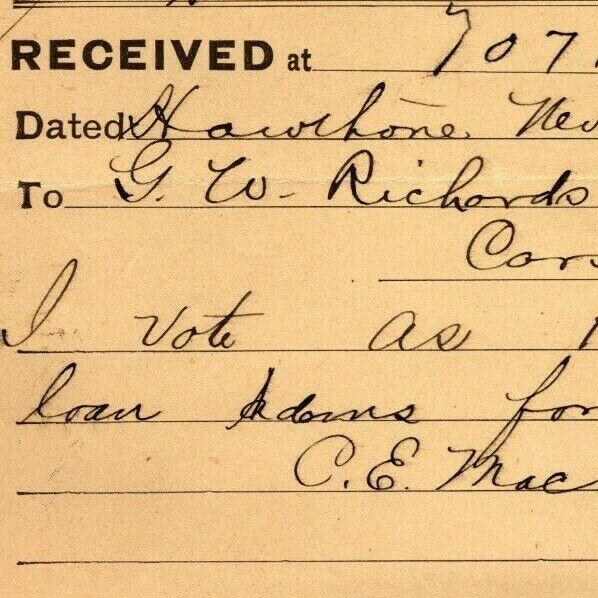 RECEIVED at 707
Dated Hawthorne, Nev
To G. W. Richards
Cars
I vote as
loan Adams for
C. E. Mac